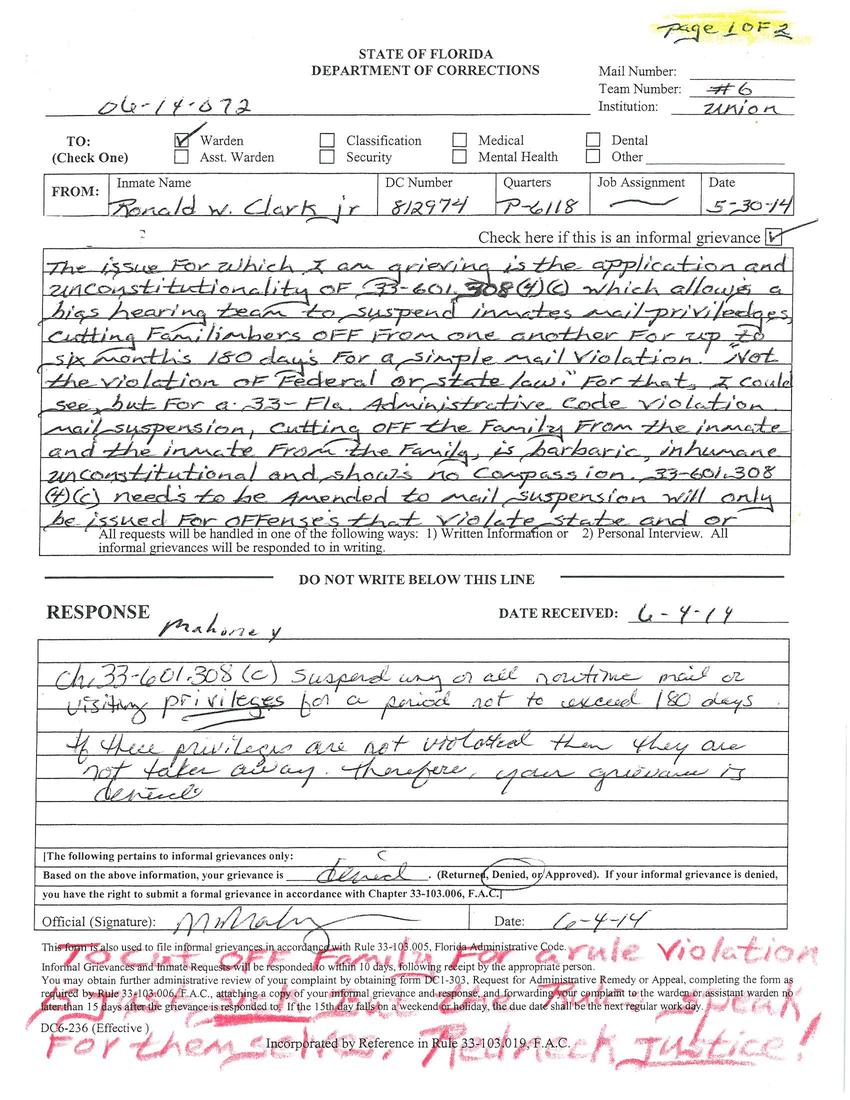 page 1 OF 2
STATE OF FLORIDA
DEPARTMENT OF CORRECTIONS
Mail Number:
Team Number: #6
Institution: union
06-14-072
TO: Warden Classification Medical Dental
(Check One) Asst. Warden Security Mental Health Other
FROM: Inmate Name DC Number Quarters Job Assignment Date
Ronald W. Clark jr 812974 P-6118 5-30-14
Check here if this is an informal grievance
The issue For which I am grieving is the application and
unconstitutionality OF 33-601.308(4)(c) which allows a
bias hearing team to suspend inmates mail priviledges,
cutting Familimbers OFF From one another For up to
six months 180 days For a simple mail violation. "Not
the violation OF Federal or state law." For that, I could
see, but For a 33-Fla. Administrative Code violation
mail suspension, cutting OFF the Family From the inmate
and the inmate From the Family, is barbaric, inhumane
unconstitutional and show's no Compassion. 33-601.308
(4)(c) need's to be Amended to mail suspension will only
be issued For OFFense's that violate state and or
All requests will be handled in one of the following ways: 1) Written Information or 2) Personal Interview. All
informal grievances will be responded to in writing.
DO NOT WRITE BELOW THIS LINE
RESPONSE DATE RECEIVED: 6-4-14
Mahoney
Ch. 33-601.308 (c) Suspend any or all routine mail or
visiting privileges for a period not to exceed 180 days
If these privileges are not violated then they are
not taken away. therefore, your grievance is
denied
[The following pertains to informal grievances only:
Based on the above information, your grievance is denied. (Returned, Denied, or Approved). If your informal grievance is denied,
you have the right to submit a formal grievance in accordance with Chapter 33-103.006, F.A.C.]
Official (Signature): Date: 6-4-14
This form is also used to file informal grievances in accordance with Rule 33-103.005, Florida Administrative Code.
TO Cut OFF Family For a rule Violation
Informal Grievances and Inmate Requests will be responded to within 10 days, following receipt by the appropriate person.
You may obtain further administrative review of your complaint by obtaining form DC1-303, Request for Administrative Remedy or Appeal, completing the form as
required by Rule 33-103.006, F.A.C., attaching a copy of your informal grievance and response, and forwarding your complaint to the warden or assistant warden no
later than 15 days after the grievance is responded to. If the 15th day falls on a weekend or holiday, the due date shall be the next regular work day.
speak
DC6-236 (Effective )
For themselves. Redneck Justice!
Incorporated by Reference in Rule 33-103.019, F.A.C.